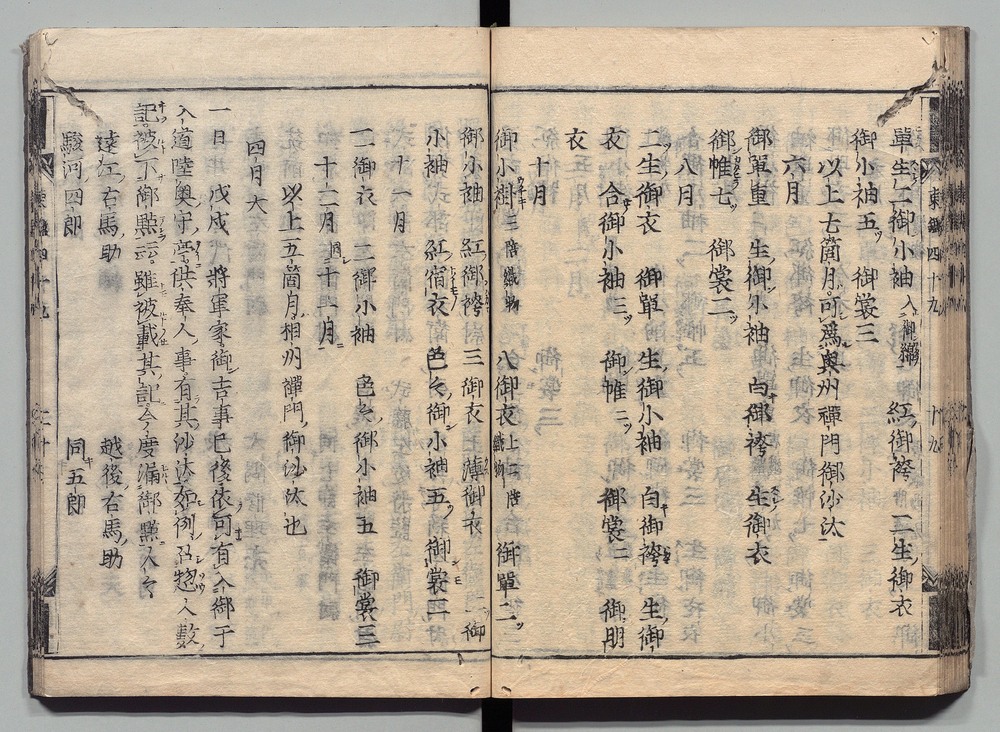 單生二御小袖 紅御袴 二生御衣
御小袖五ツ 御裳三
以上七箇月可爲奥州禪門御沙汰
六月
御單重 生御小袖 白御袴 生御衣
御帷七ツ 御裳二ツ
八月
二生御衣 御單 生御小袖 白御袴 生御
衣 合御小袖三ツ 御帷二ツ 御裳二 御明
衣
十月
御小袿 三階織物 八御衣 上二階織物 御單二ツ
御小袖 紅御袴三 御衣 薄御衣 御
小袖 紅宿衣 色々御小袖五ツ 御裳二
十一月
二御衣 二御小袖 色々御小袖五 御裳三
十二月 閏十一月
以上五箇月相州禪門御沙汰也
四月大
一日 戊戌 將軍家御吉事已後依可有入御于
入道陸奥守亭供奉人事有其沙汰如例召惣人數
記被下御點云雖被載其記今度漏御點人々
遠江右馬助 越後右馬助
駿河四郎 同五郎
東鑑四十九 十九